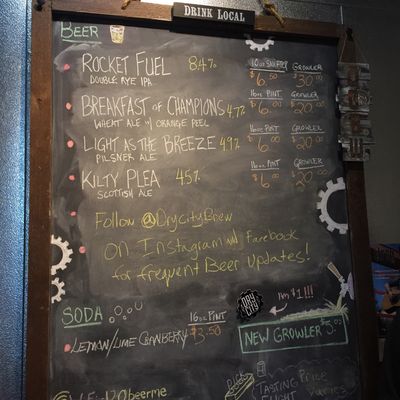 DRINK LOCAL
BEER
ROCKET FUEL 8.4% 10oz SNIFTER $6.50 GROWLER $30.00
DOUBLE RYE IPA
BREAKFAST OF CHAMPIONS 4.7% 16oz PINT $6.00 GROWLER $20.00
WHEAT ALE W/ ORANGE PEEL
LIGHT AS THE BREEZE 4.9% 16oz PINT $6.00 GROWLER $20.00
PILSNER ALE
KILTY PLEA 4.5% 16oz PINT $6.00 GROWLER $20.00
SCOTTISH ALE
Follow @DryCityBrew
on Instagram and Facebook
for frequent Beer updates!
SODA
16oz PINT
LEMON/LIME CRANBERRY $3.50
DRY CITY
I'm $1!!!
NEW GROWLER
TASTING
FLIGHT